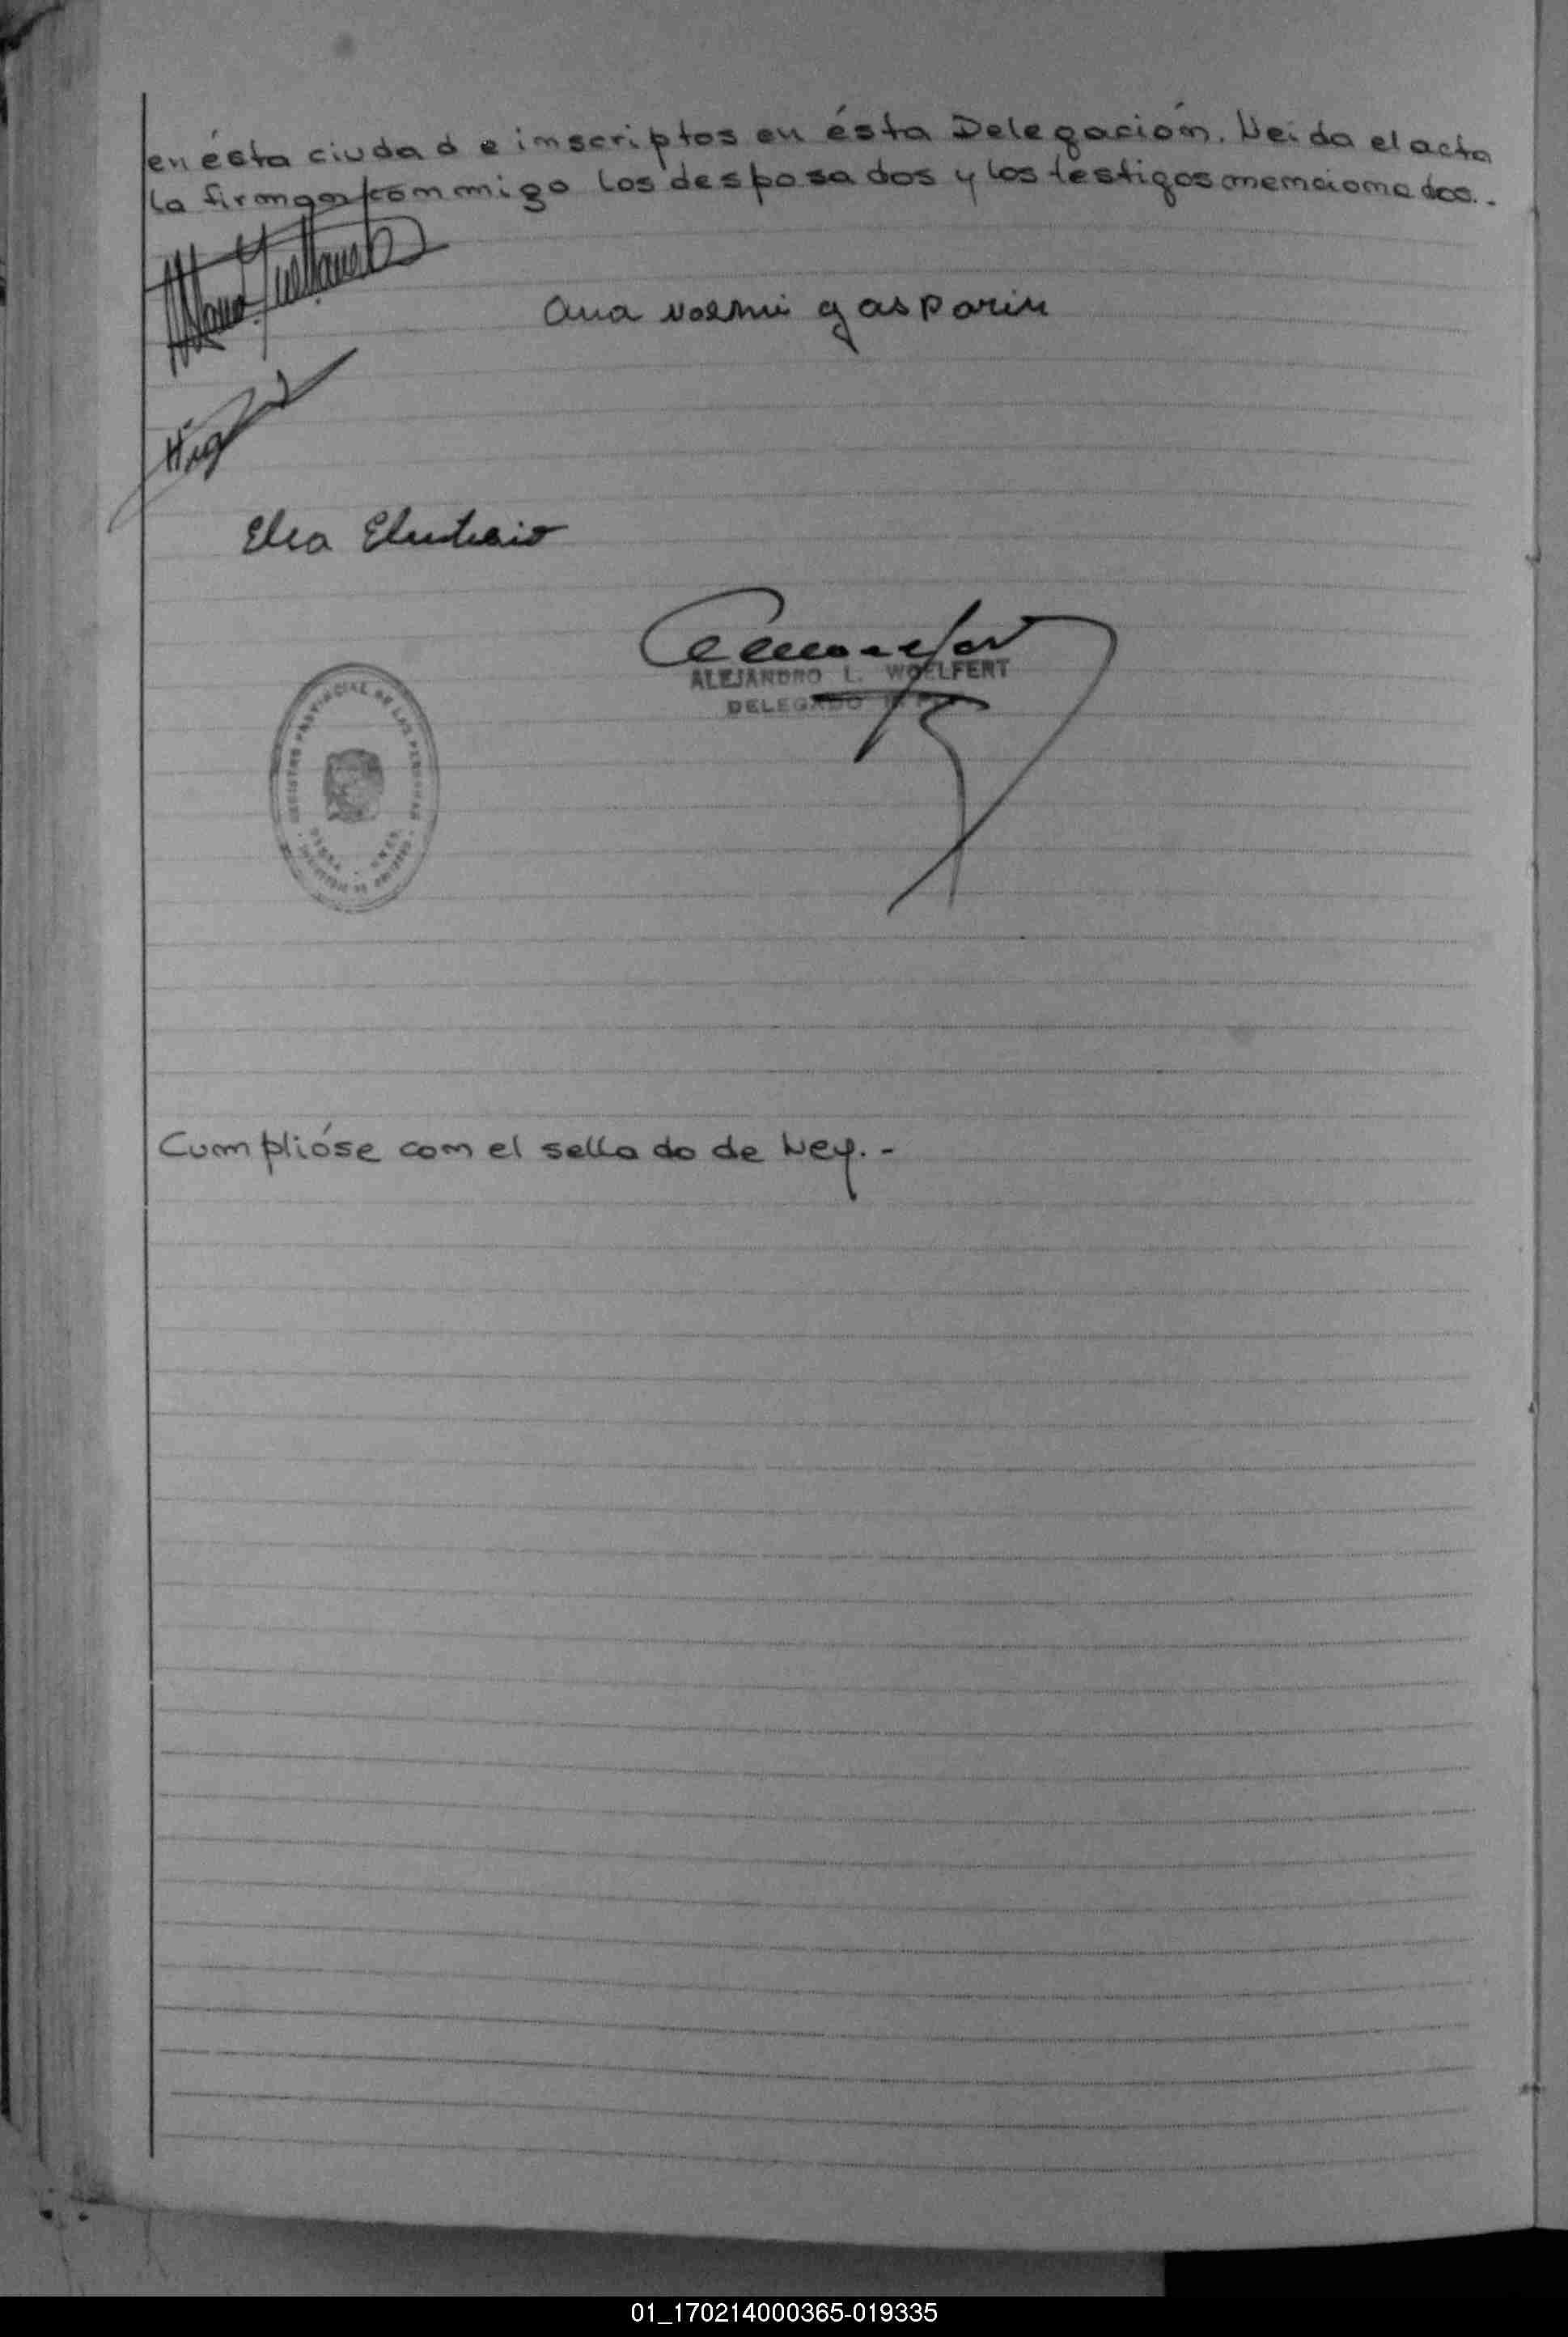 en ésta ciudad e inscriptos en ésta Delegación. Leída el acta
la firman conmigo los desposados y los testigos mencionados.-
Ana Noemi gasparin
Elsa Eleuterio
ALEJANDRO L. WOELFERT
DELEGADO
REGISTRO PROVINCIAL DE LAS PERSONAS
Cumplióse con el sellado de Ley.-
01_170214000365-019335